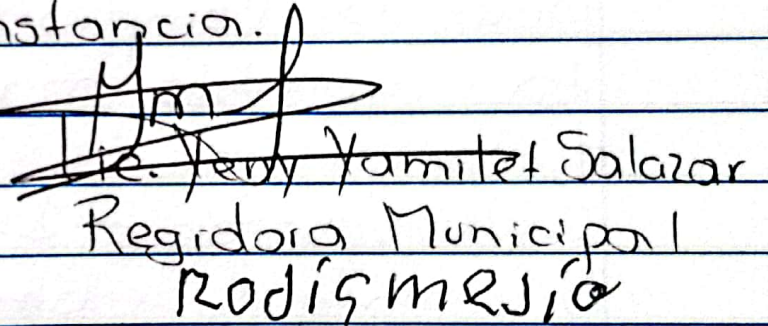 nstancia.
Lic. Yeny Yamilet Salazar
Regidora Municipal